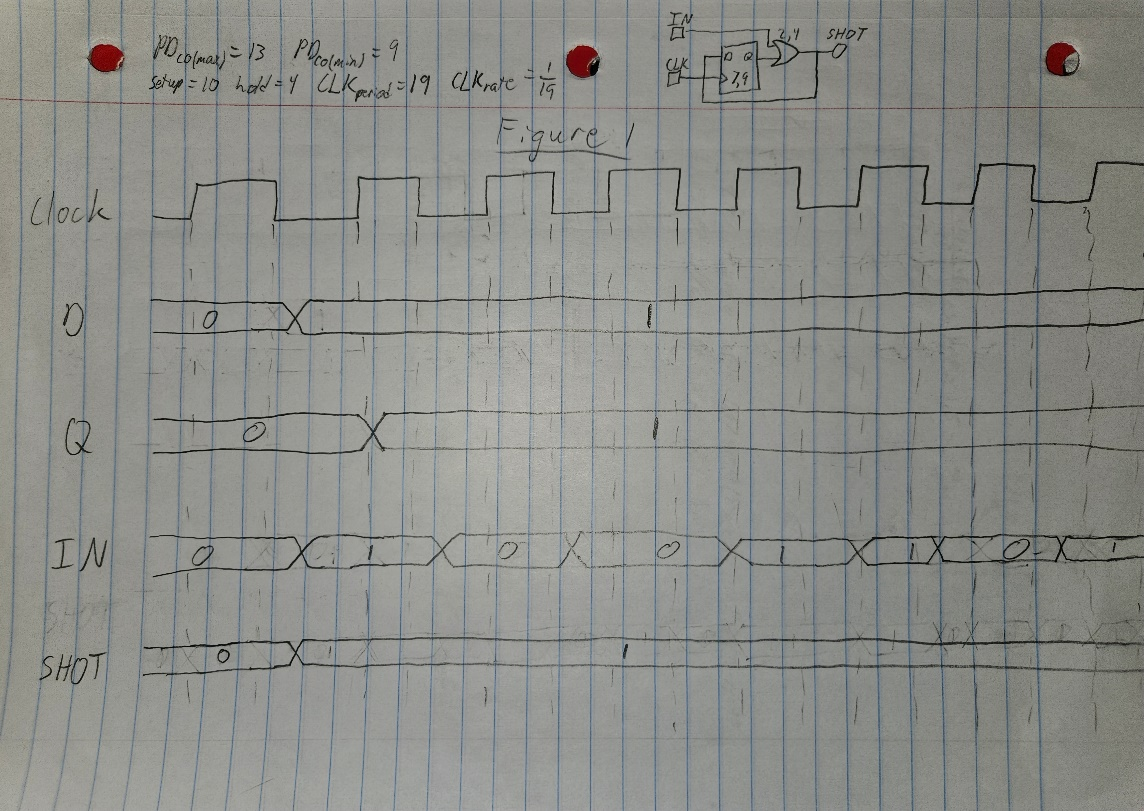 PD_CO(max) = 13 PD_CO(min) = 9
setup = 10 hold = 4 CLK_period = 19 CLK_rate = 1/19
IN 2,4 SHOT
CLK D Q
7,9
Figure 1
Clock
D 0 1
Q 0 1
IN 0 1 0 0 1 1 0 1
SHOT 0 1